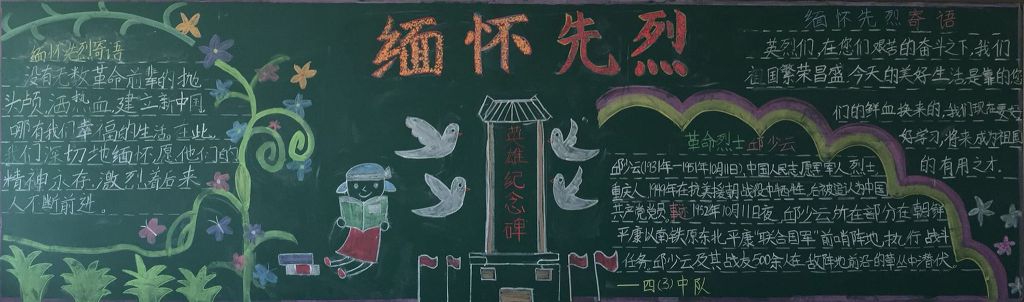 缅怀先烈
缅怀先烈寄语
没有无数革命前辈们抛
头颅,洒热血,建立新中国
哪有我们幸福的生活,在此,
我们深切地缅怀,愿他们的
精神永存,激烈着后来
人不断前进。
英雄纪念碑
缅怀先烈寄语
英烈们,在您们艰苦的奋斗之下,我们
祖国繁荣昌盛,今天的美好生活是靠的您
们的鲜血换来的,我们现在要好
好学习,将来成为祖国
的有用之才.
革命烈士邱少云
邱少云(1931年—1951年10月11日),中国人民志愿军军人,烈士,
重庆人,1949年在抗美援朝战役中牺牲,后被追认为中国
共产党党员,1952年10月11日夜,邱少云所在部分在朝鲜
平康以南,铁原东北,平康"联合国军"前哨阵地,执行战斗
任务,邱少云及其战友500余人在敌阵地前沿的草丛中潜伏。
——四(3)中队